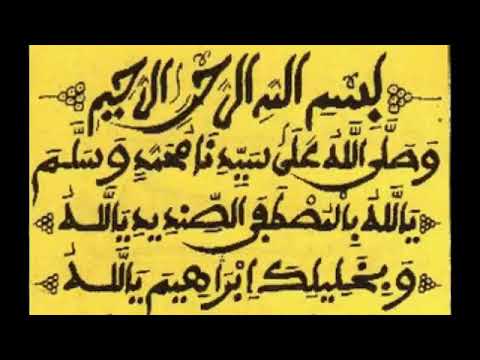 بِسْمِ اللهِ الرَّحْمٰنِ الرَّحِيمِ
وَصَلَّى اللَّهُ عَلَى سَيِّدِنَا مُحَمَّدٍ وَسَلَّمَ
يَااللَّهُ بِالْمُصْطَفَى الصِّنْدِيدِ يَااللَّهُ
وَبِخَلِيلِكَ إِبْرَاهِيمَ يَااللَّهُ